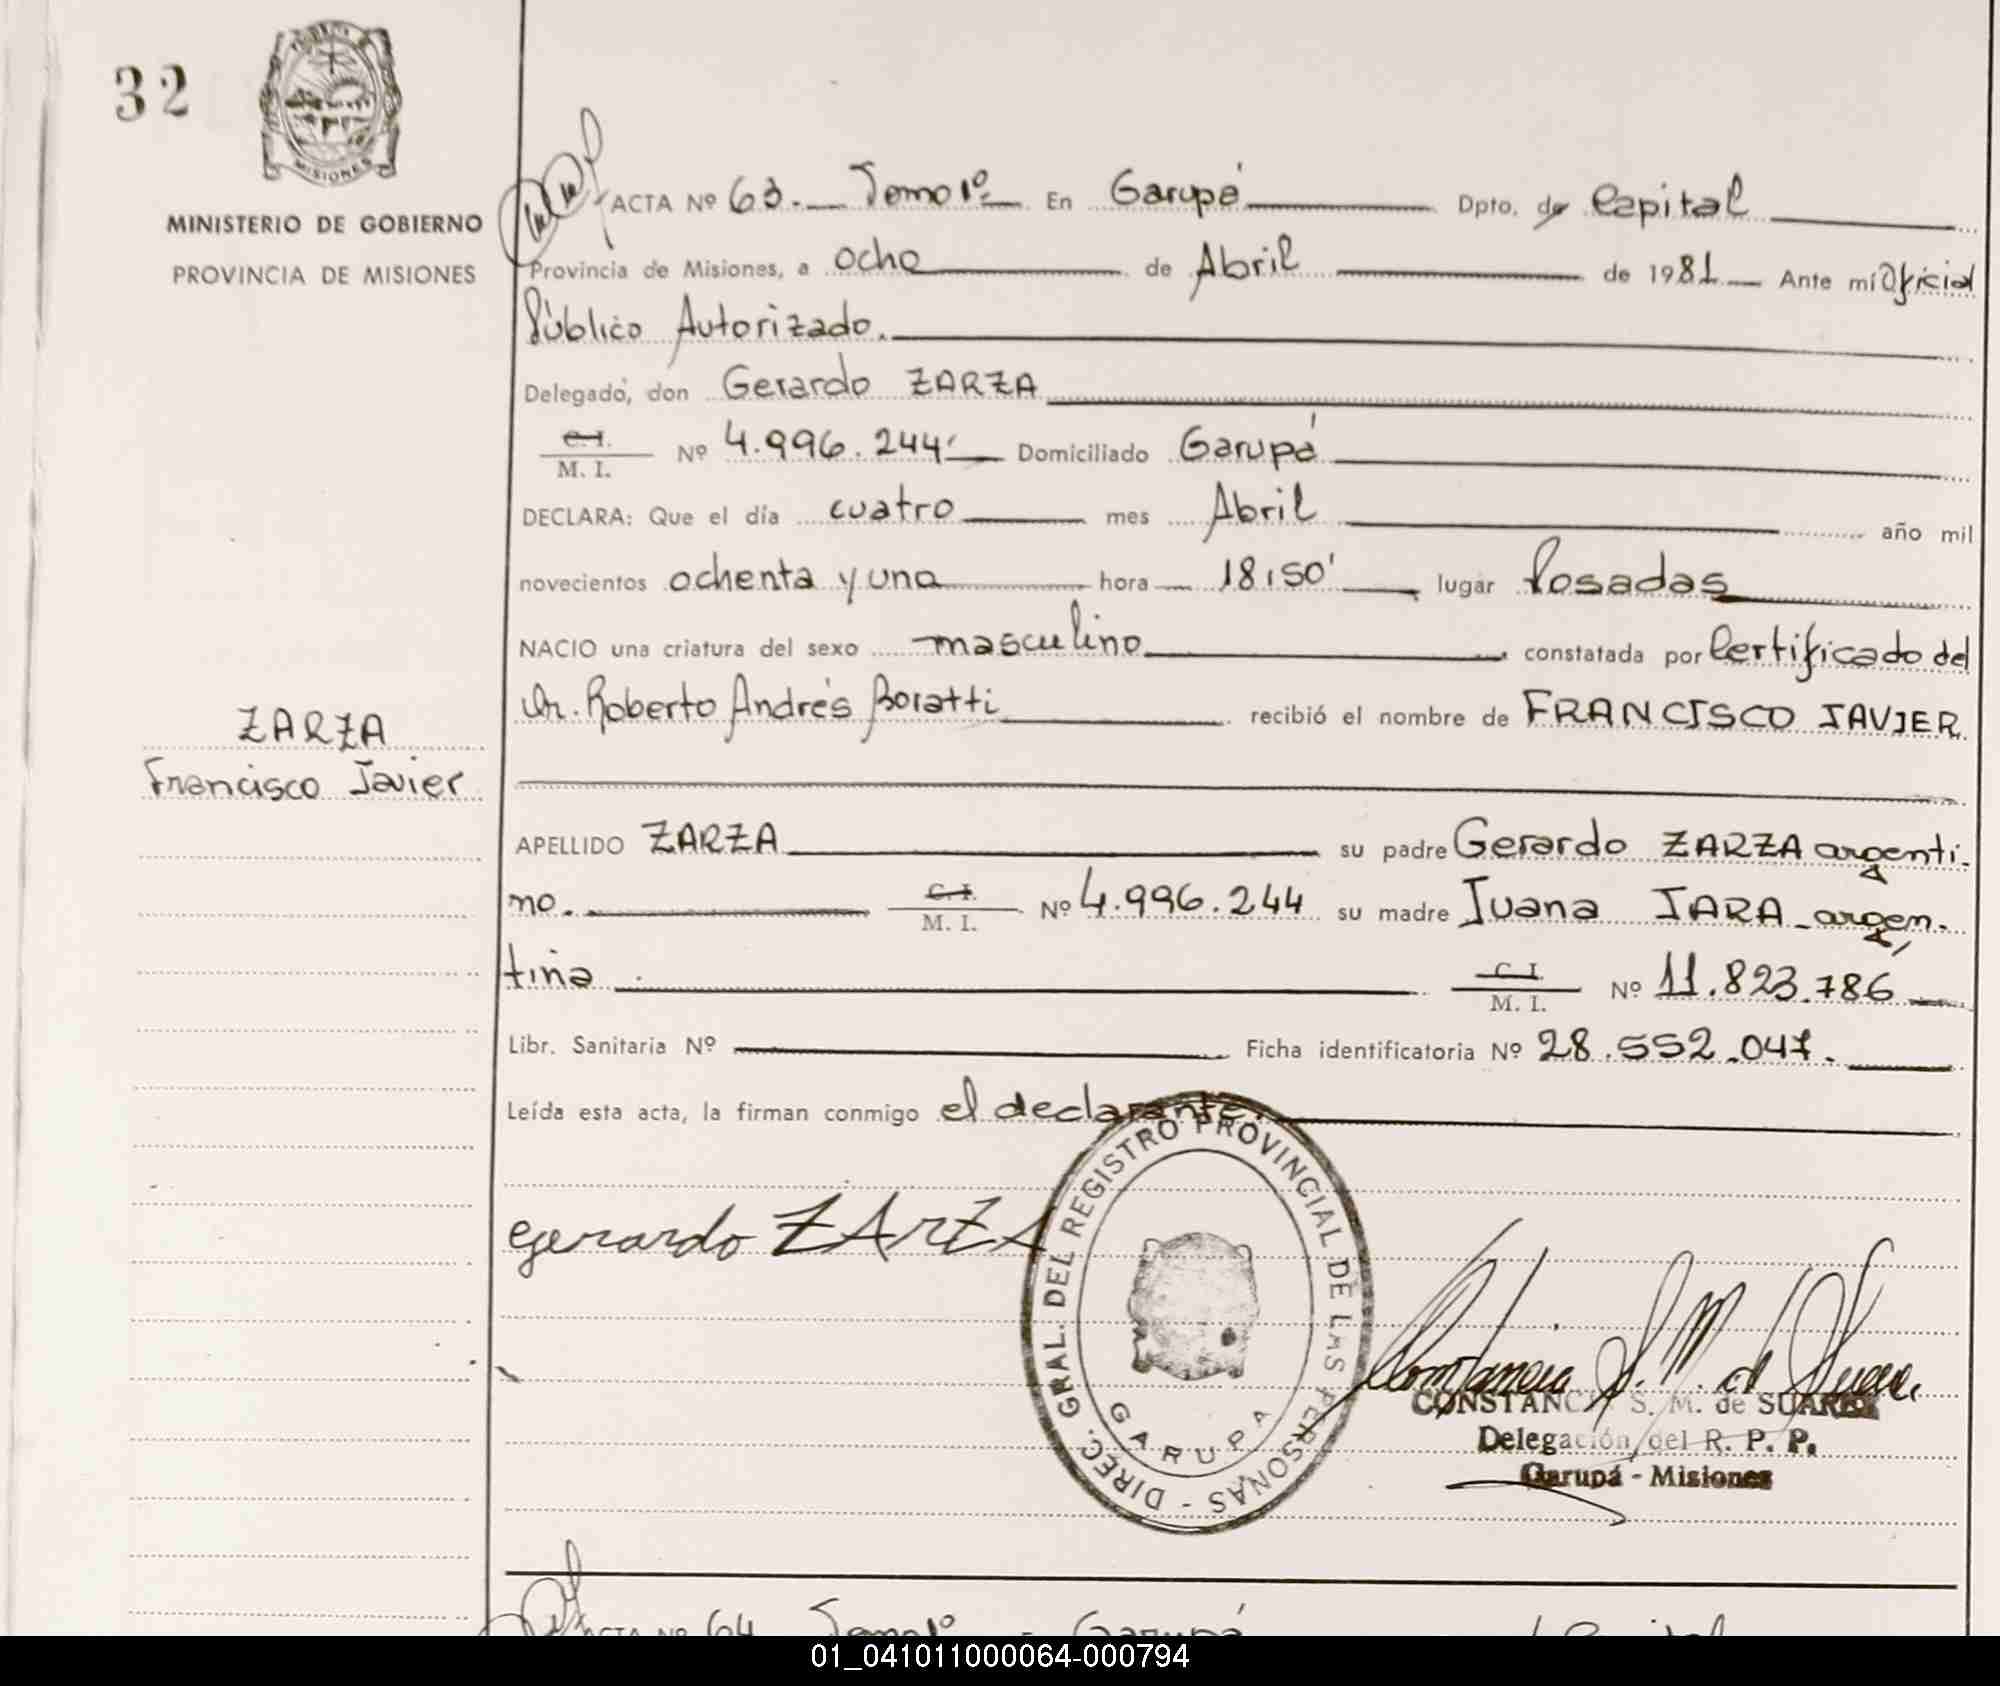 32
MISIONES
MINISTERIO DE GOBIERNO
PROVINCIA DE MISIONES
ACTA Nº 63. Tomo 1º En Garupá Dpto. de Capital
Provincia de Misiones, a ocho de Abril de 1981 Ante mí Oficial
Público Autorizado.
Delegado, don Gerardo ZARZA
C.I.
M. I. Nº 4.996.244 Domiciliado Garupá
DECLARA: Que el día cuatro mes Abril año mil
novecientos ochenta y uno hora 18,50' lugar Posadas
NACIO una criatura del sexo masculino constatada por Certificado del
Dr. Roberto Andrés Boratti recibió el nombre de FRANCISCO JAVIER
ZARZA
Francisco Javier
APELLIDO ZARZA su padre Gerardo ZARZA argenti-
no. C.I.
M. I. Nº 4.996.244 su madre Juana JARA argen-
tina C.I.
M. I. Nº 11.823.786
Libr. Sanitaria Nº Ficha identificatoria Nº 28.552.047.
Leída esta acta, la firman conmigo el declarante.
gerardo ZArZA
DIREC. GRAL. DEL REGISTRO PROVINCIAL DE LAS PERSONAS -
GARUPA
Constancia S. M. de Suarez
CONSTANCIA S. M. de SUAREZ
Delegación del R. P. P.
Garupá - Misiones
ACTA Nº 64 Tomo 1º Garupá Capital
01_041011000064-000794